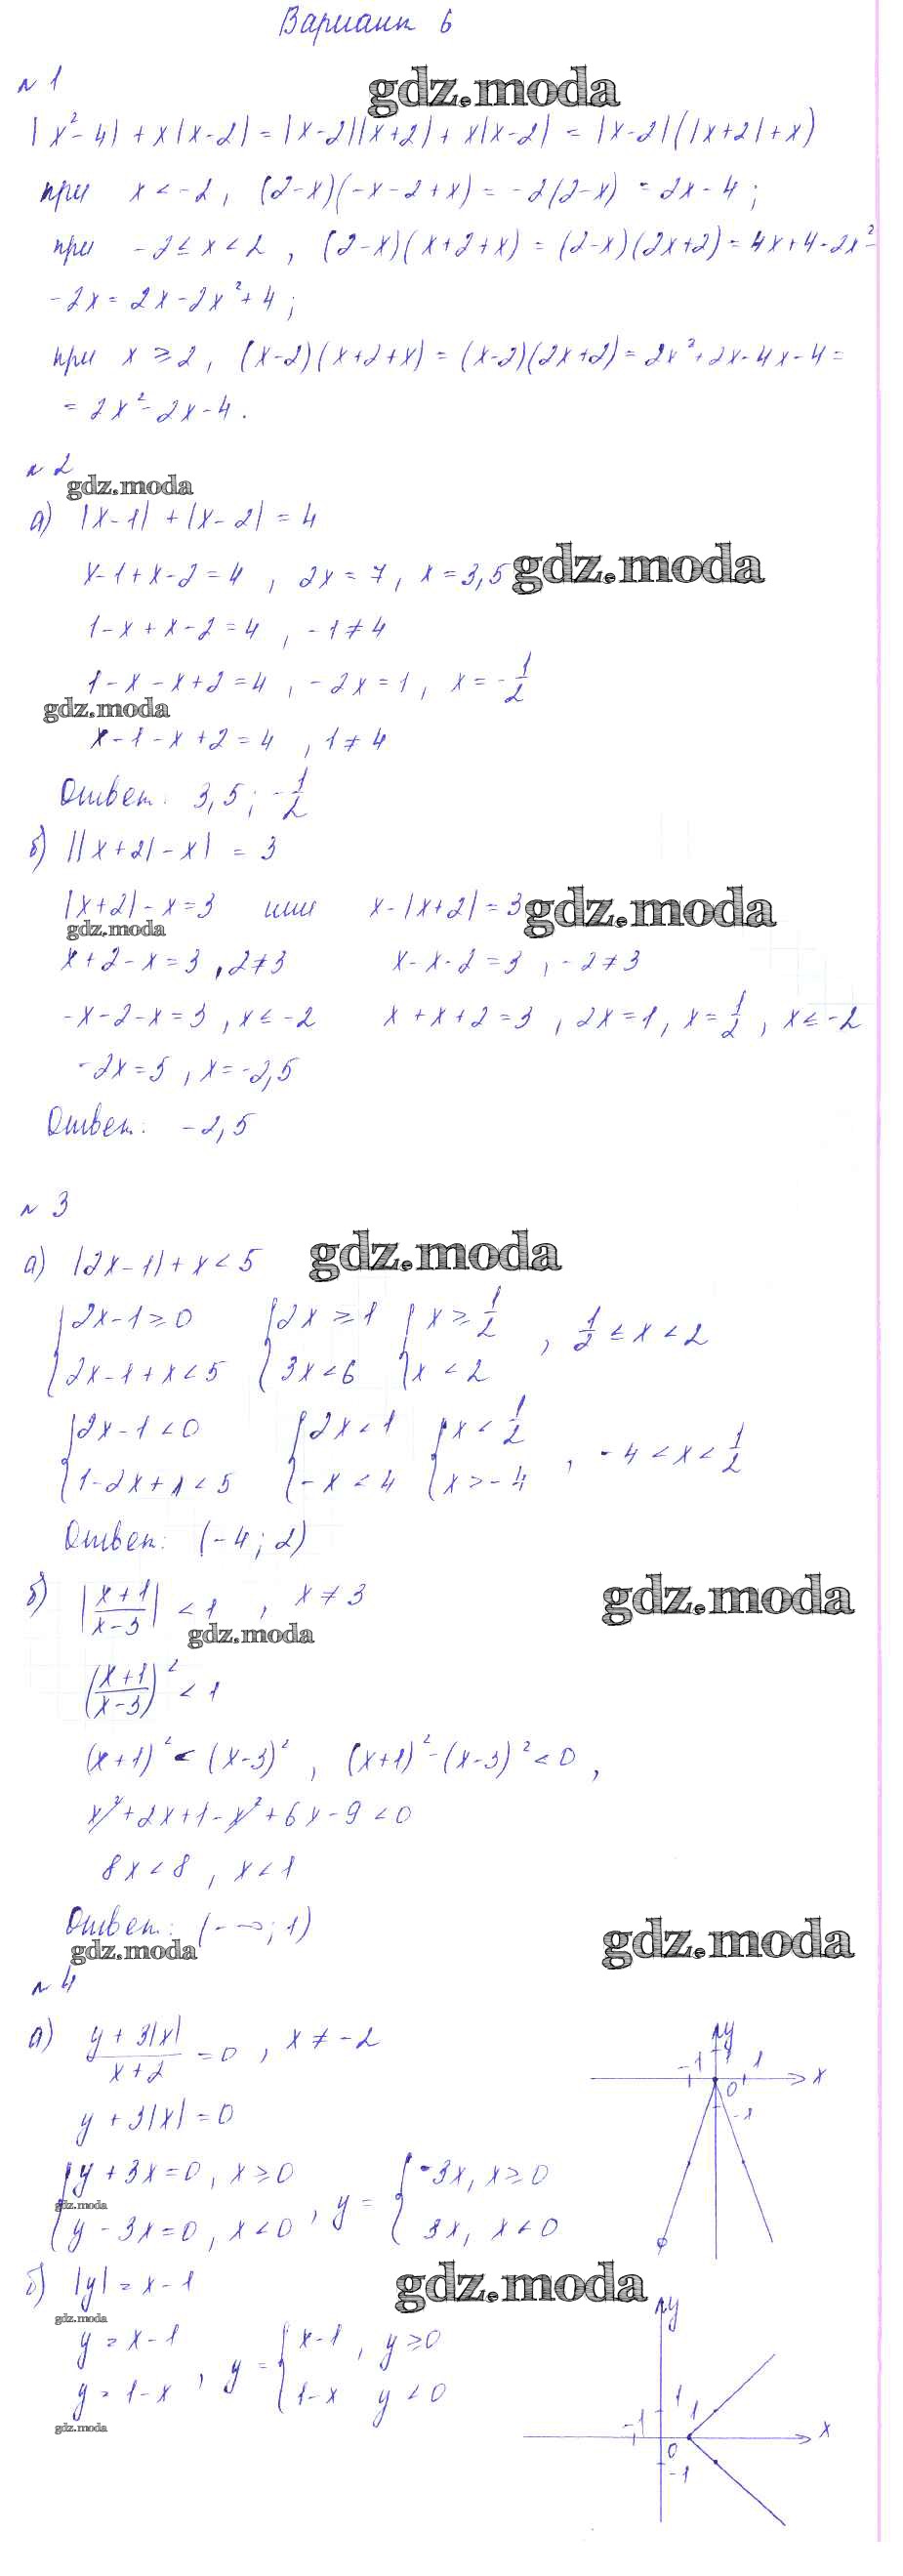 Вариант 6
№ 1
gdz.moda
|x²-4| + x|x-2| = |x-2||x+2| + x|x-2| = |x-2|(|x+2|+x)
при x < -2, (2-x)(-x-2+x) = -2(2-x) = 2x-4;
при -2 ≤ x < 2, (2-x)(x+2+x) = (2-x)(2x+2) = 4x+4-2x²-
-2x = 2x-2x²+4;
при x ≥ 2, (x-2)(x+2+x) = (x-2)(2x+2) = 2x²+2x-4x-4=
= 2x²-2x-4.
№ 2
gdz.moda
а) |x-1| + |x-2| = 4
x-1+x-2=4, 2x=7, x=3,5
gdz.moda
1-x+x-2=4, -1≠4
1-x-x+2=4, -2x=1, x=-1/2
gdz.moda
x-1-x+2=4, 1≠4
Ответ: 3,5; -1/2
б) ||x+2|-x| = 3
|x+2|-x=3 или x-|x+2|=3
gdz.moda
gdz.moda
x+2-x=3, 2≠3 x-x-2=3, -2≠3
-x-2-x=3, x≤-2 x+x+2=3, 2x=1, x=1/2, x≤-2
-2x=5, x=-2,5
Ответ: -2,5
№ 3
а) |2x-1|+x<5
gdz.moda
{2x-1≥0 {2x≥1 {x≥1/2 , 1/2≤x<2
{2x-1+x<5 {3x<6 {x<2
{2x-1<0 {2x<1 {x<1/2 , -4<x<1/2
{1-2x+x<5 {-x<4 {x>-4
Ответ: (-4; 2)
б) |(x+1)/(x-3)| < 1, x≠3
gdz.moda
gdz.moda
((x+1)/(x-3))² < 1
(x+1)² < (x-3)², (x+1)²-(x-3)²<0,
x²+2x+1-x²+6x-9<0
8x<8, x<1
Ответ: (-∞; 1)
gdz.moda
gdz.moda
№ 4
а) (y+3|x|)/(x+2) = 0, x≠-2
y+3|x|=0
{y+3x=0, x≥0 , y = {-3x, x≥0
gdz.moda
{y-3x=0, x<0 {3x, x<0
y
-1 1 1 x
0
-1
б) |y| = x-1
gdz.moda
gdz.moda
y = x-1 , y = {x-1, y≥0
y = 1-x {1-x y<0
gdz.moda
y
-1 1 1 x
0
-1